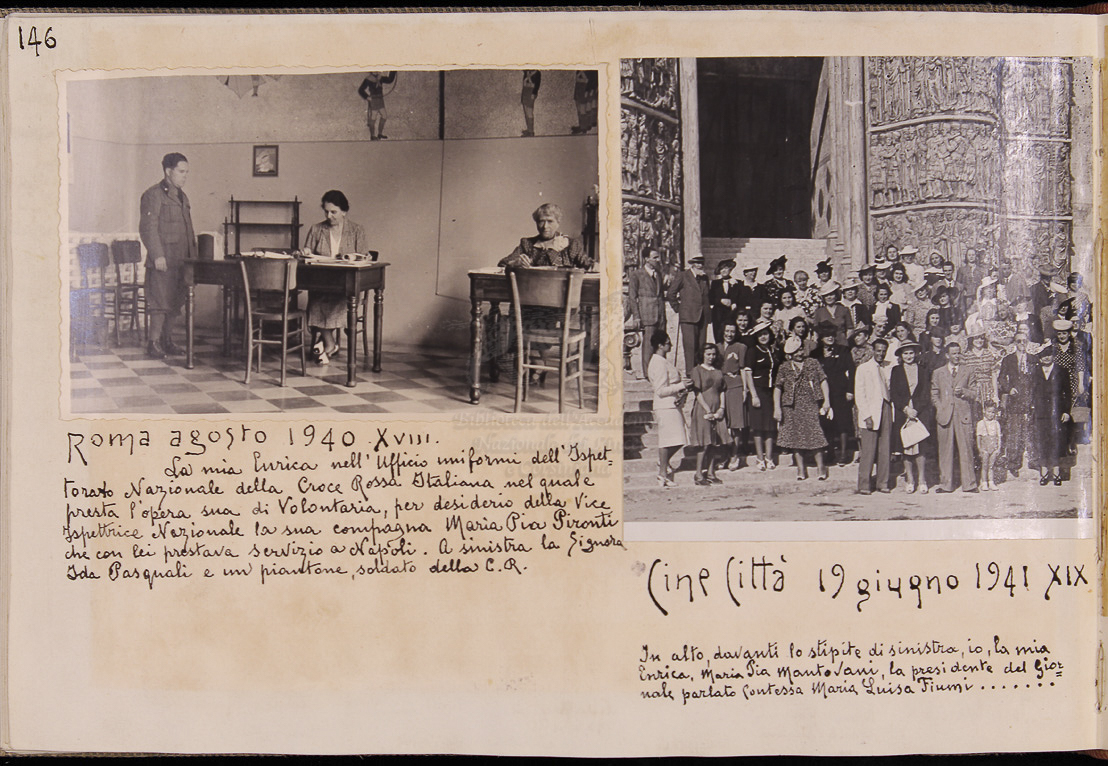 146
Roma agosto 1940 XVIII.
La mia Enrica nell'Ufficio uniformi dell'Ispet=
torato Nazionale della Croce Rossa Italiana nel quale
presta l'opera sua di Volontaria, per desiderio della Vice
Ispettrice Nazionale la sua compagna Maria Pia Pironti
che con lei prestava servizio a Napoli. A sinistra la Signora
Ida Pasquali e un piantone, soldato della C.R.
Cine Città 19 giugno 1941 XIX
In alto, davanti lo stipite di sinistra, io, la mia
Enrica, Maria Pia Mantovani, la presidente del Gior=
nale parlato Contessa Maria Luisa Fiumi .......